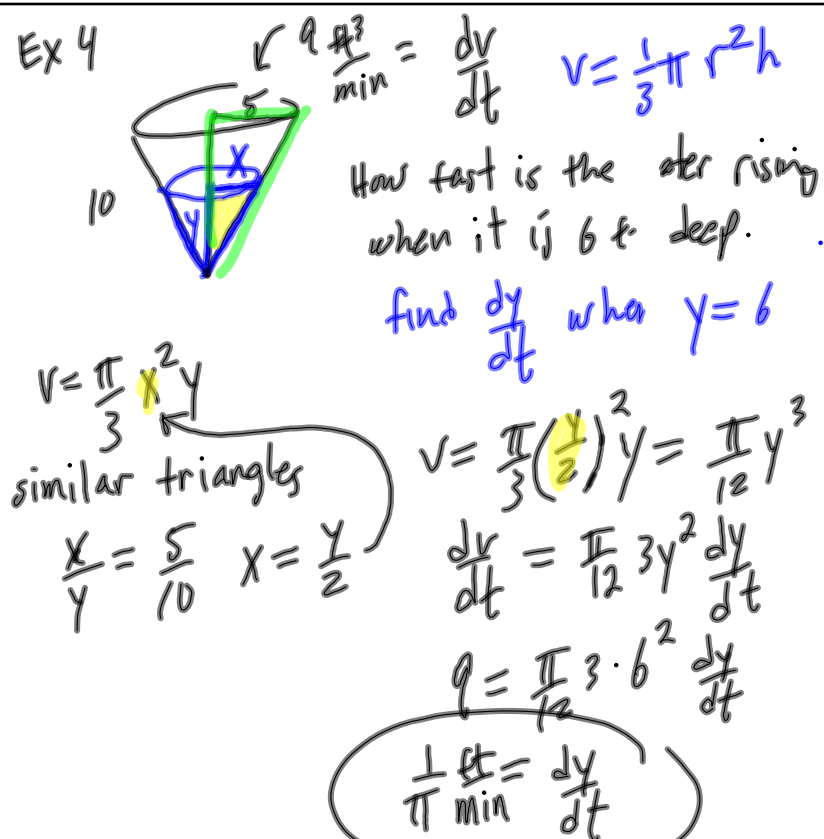 Ex 4
9 ft³/min = dv/dt
v = 1/3 π r²h
5
x
10
y
How fast is the ater rising
when it is 6 ft deep.
find dy/dt when y = 6
v = π/3 x² y
similar triangles
x/y = 5/10 x = y/2
v = π/3 (y/2)² y = π/12 y³
dv/dt = π/12 3y² dy/dt
9 = π/12 3 · 6² dy/dt
1/π ft/min = dy/dt